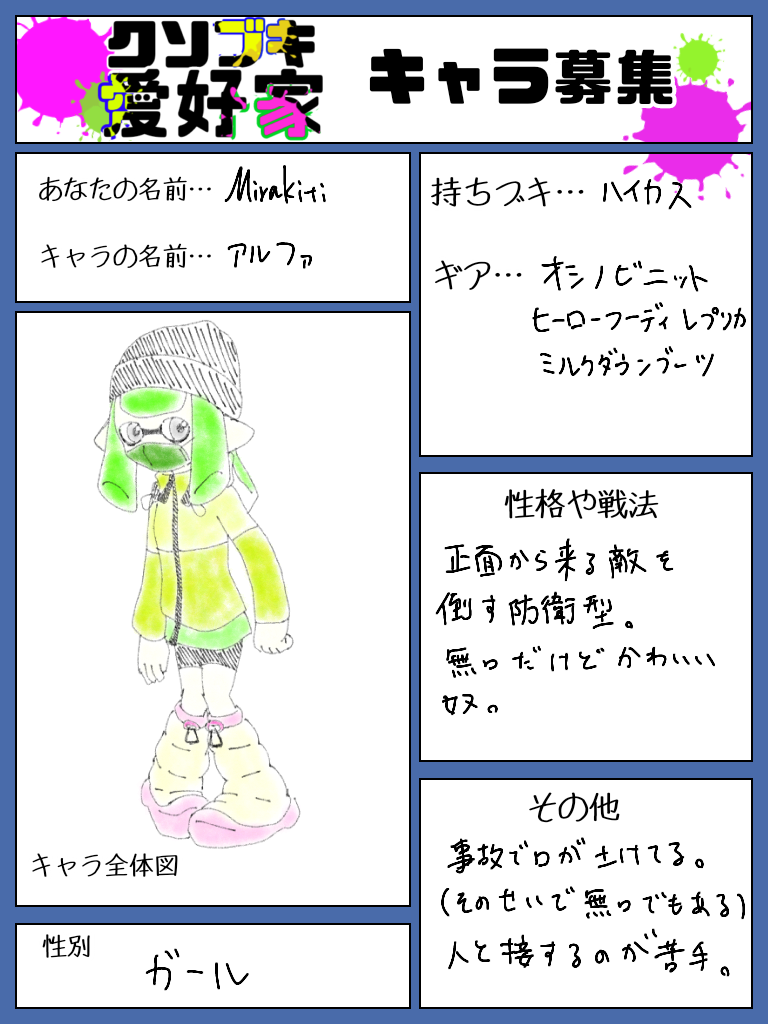 クソブキ
愛好家
キャラ募集
あなたの名前… Mirakiti
キャラの名前… アルファ
持ちブキ… ハイカス
ギア… オシノビニット
ヒーローフーディ レプリカ
ミルクダウンブーツ
性格や戦法
正面から来る敵を
倒す防衛型。
無口だけどかわいい
奴。
その他
事故で口が土けてる。
(そのせいで無口でもある)
人と接するのが苦手。
キャラ全体図
性別
ガール